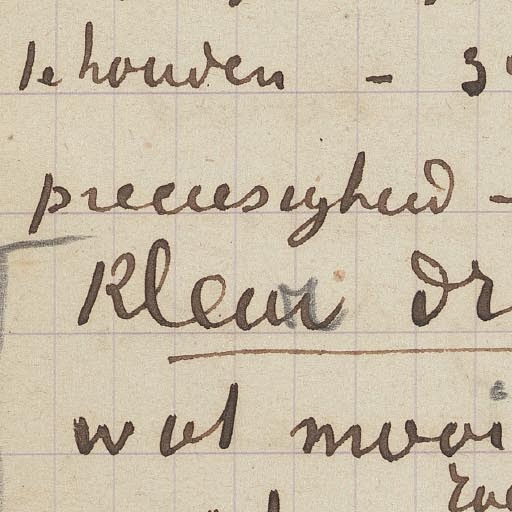 te houden - 3
preciesigheid -
Klein dr
wat mooi